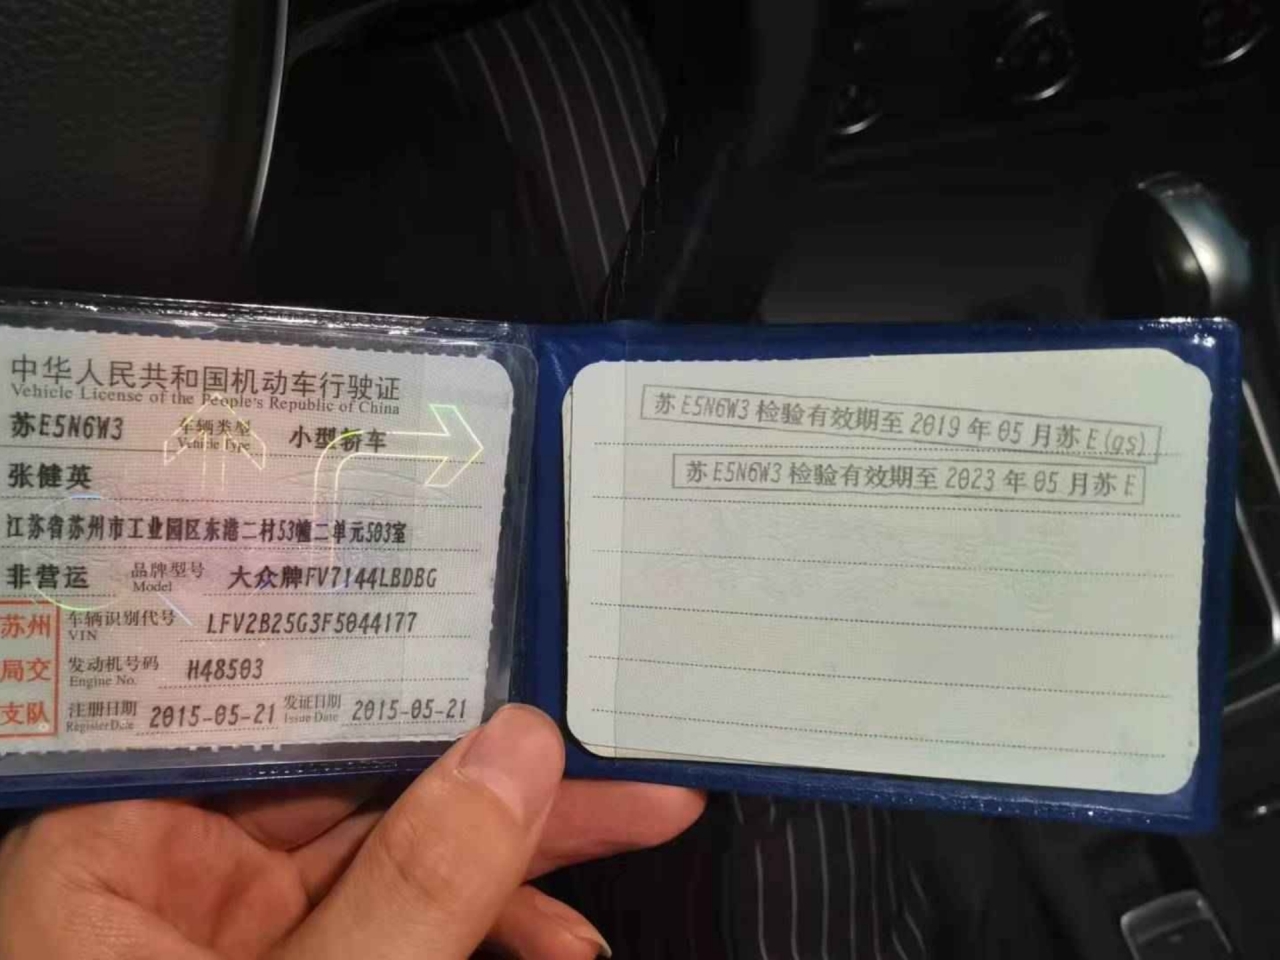 中华人民共和国机动车行驶证
Vehicle License of the People's Republic of China
苏E5N6W3 车辆类型 小型轿车
Vehicle Type
张健英
江苏省苏州市工业园区东港二村53幢二单元503室
非营运 品牌型号 大众牌FV7144LBDBG
Model
苏州 车辆识别代号 LFV2B25G3F5044177
VIN
局交 发动机号码 H48503
Engine No.
支队 注册日期 2015-05-21 发证日期 2015-05-21
Register Date Issue Date
苏E5N6W3 检验有效期至 2019 年 05 月苏 E(gs)
苏 E5N6W3 检验有效期至 2023 年 05 月苏 E